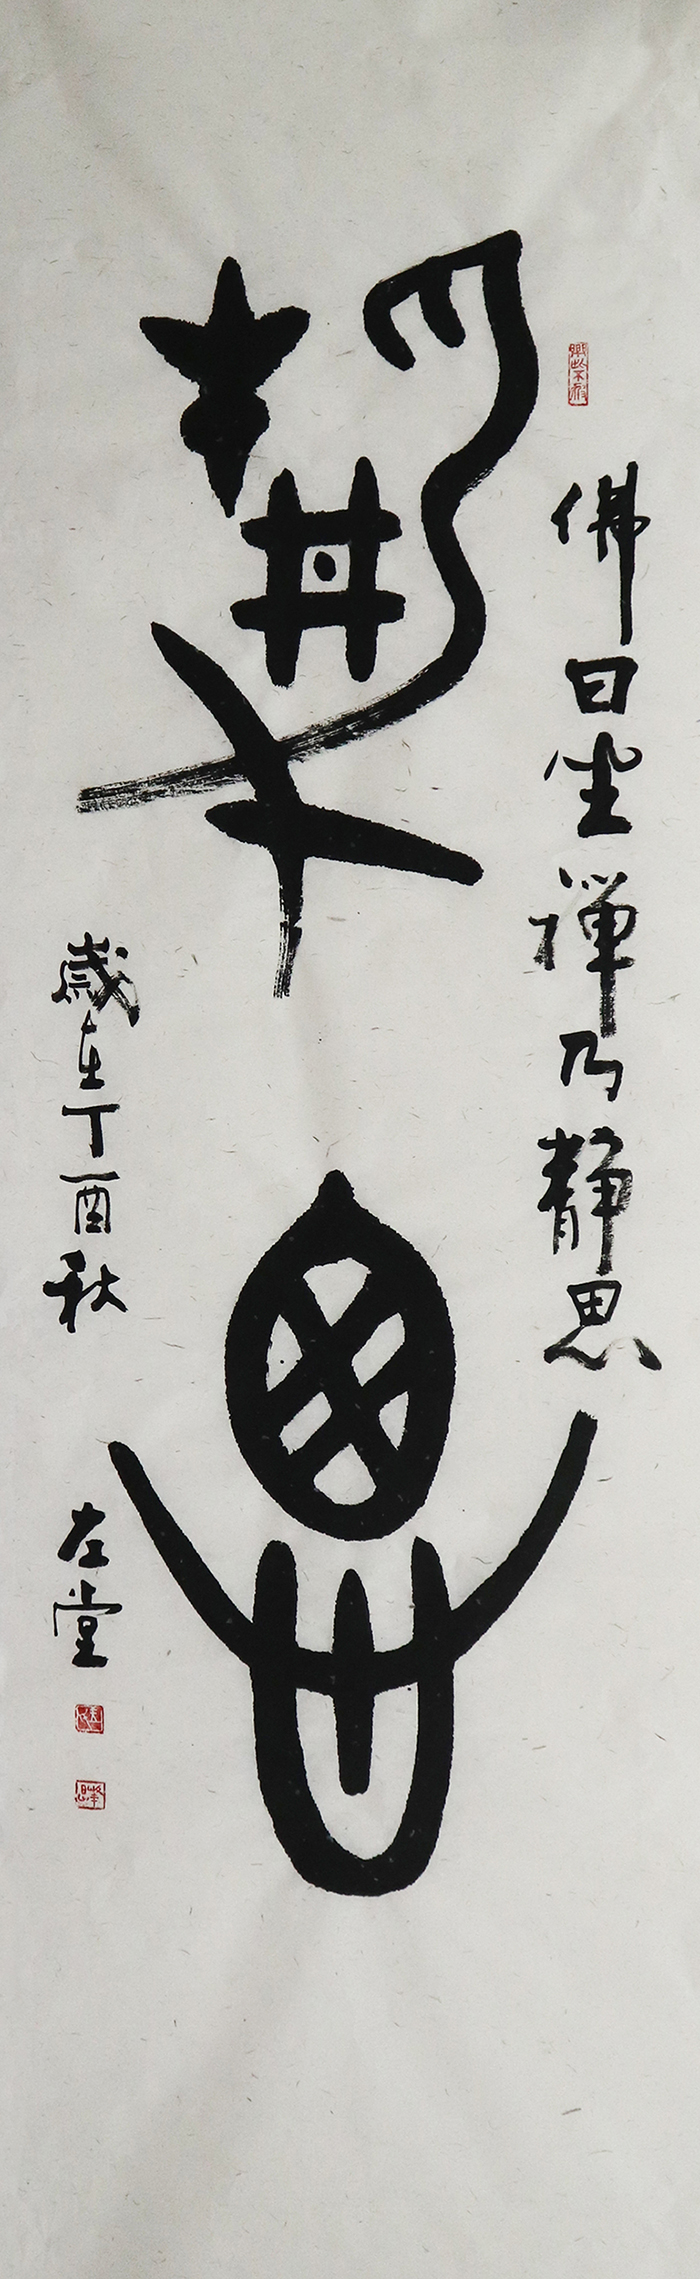 靜思
佛曰坐禪乃靜思
歲在丁酉秋
左堂